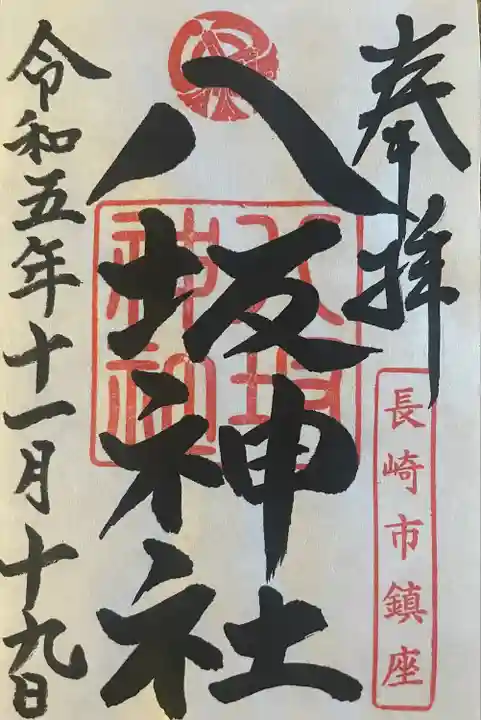 奉拝
長崎市鎮座
八坂神社
八坂
神社
令和五年十一月十九日